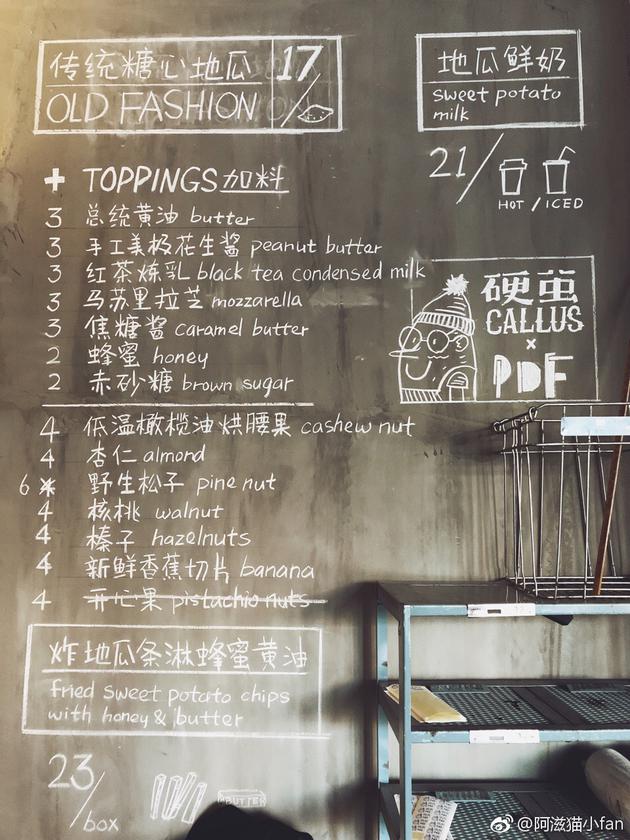 传统糖心地瓜 17/
OLD FASHION
地瓜鲜奶
sweet potato
milk
21/
HOT / ICED
+ TOPPINGS 加料
3 总统黄油 butter
3 手工美极花生酱 peanut butter
3 红茶炼乳 black tea condensed milk
3 马苏里拉芝 mozzarella
3 焦糖酱 caramel butter
2 蜂蜜 honey
2 赤砂糖 brown sugar
硬茧
CALLUS
×
PDF
4 低温橄榄油烘腰果 cashew nut
4 杏仁 almond
6 野生松子 pine nut
4 核桃 walnut
4 榛子 hazelnuts
4 新鲜香蕉切片 banana
4 开心果 pistachio nuts
炸地瓜条淋蜂蜜黄油
fried sweet potato chips
with honey & butter
23/box
BUTTER
@阿滋猫小fan